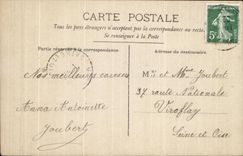 CARTE POSTALE
Tous les pays étrangers n'acceptent pas la correspondance au recto.
Se renseigner à la Poste
Partie réservée à la correspondance
Adresse du destinataire
Nos meilleures caresses
Anna Antoinette
Joubert
Mr et Mme Joubert
37 route Nationale
Viroflay
Seine et Oise
5